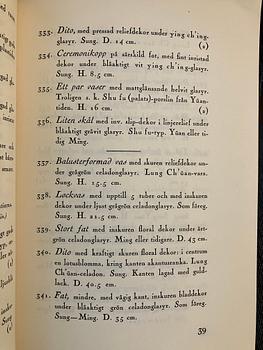 333. Dito, med pressad reliefdekor under ying ch'ing-
glasyr. Sung. D. 14 cm.
(2)
334. Ceremonikopp på särskild fat, med fint inristad
dekor under blåaktigt vit ying ch'ing-glasyr.
Sung. H. 8.5 cm.
335. Ett par vaser med mattglänsande helvit glasyr.
Troligen s. k. Shu fu (palats)-porslin från Yüan-
tiden. H. 16 cm.
(2)
336. Liten skål med inv. slip-dekor i linjerelief under
blåaktigt gråvit glasyr. Shu fu-typ. Yüan eller ti-
dig Ming.
337. Balusterformad vas med inskuren reliefdekor un-
der grågrön celadonglasyr. Lung Ch'üan-vars.
Sung. H. 15.5 cm.
338. Lockvas med upptill 5 tuber och med inskuren
dekor under ljust grågrön celadonglasyr. Som föreg.
Sung. H. 21.5 cm.
339. Stort fat med inskuren floral dekor under ärt-
grön celadonglasyr. Ming eller tidigare. D. 43 cm.
340. Dito med kraftigt skuren floral dekor: i centrum
en lotusblomma, kring kanten akantusranka. Lung
Ch'üan-celadon. Sung. Kanten lagad med guld-
lack. D. 40.5 cm.
341. Fat, mindre, med vågig kant, inskuren bladdekor
under blåaktigt grön celadonglasyr. Som föreg.
Sung—Ming. D. 35 cm.
39